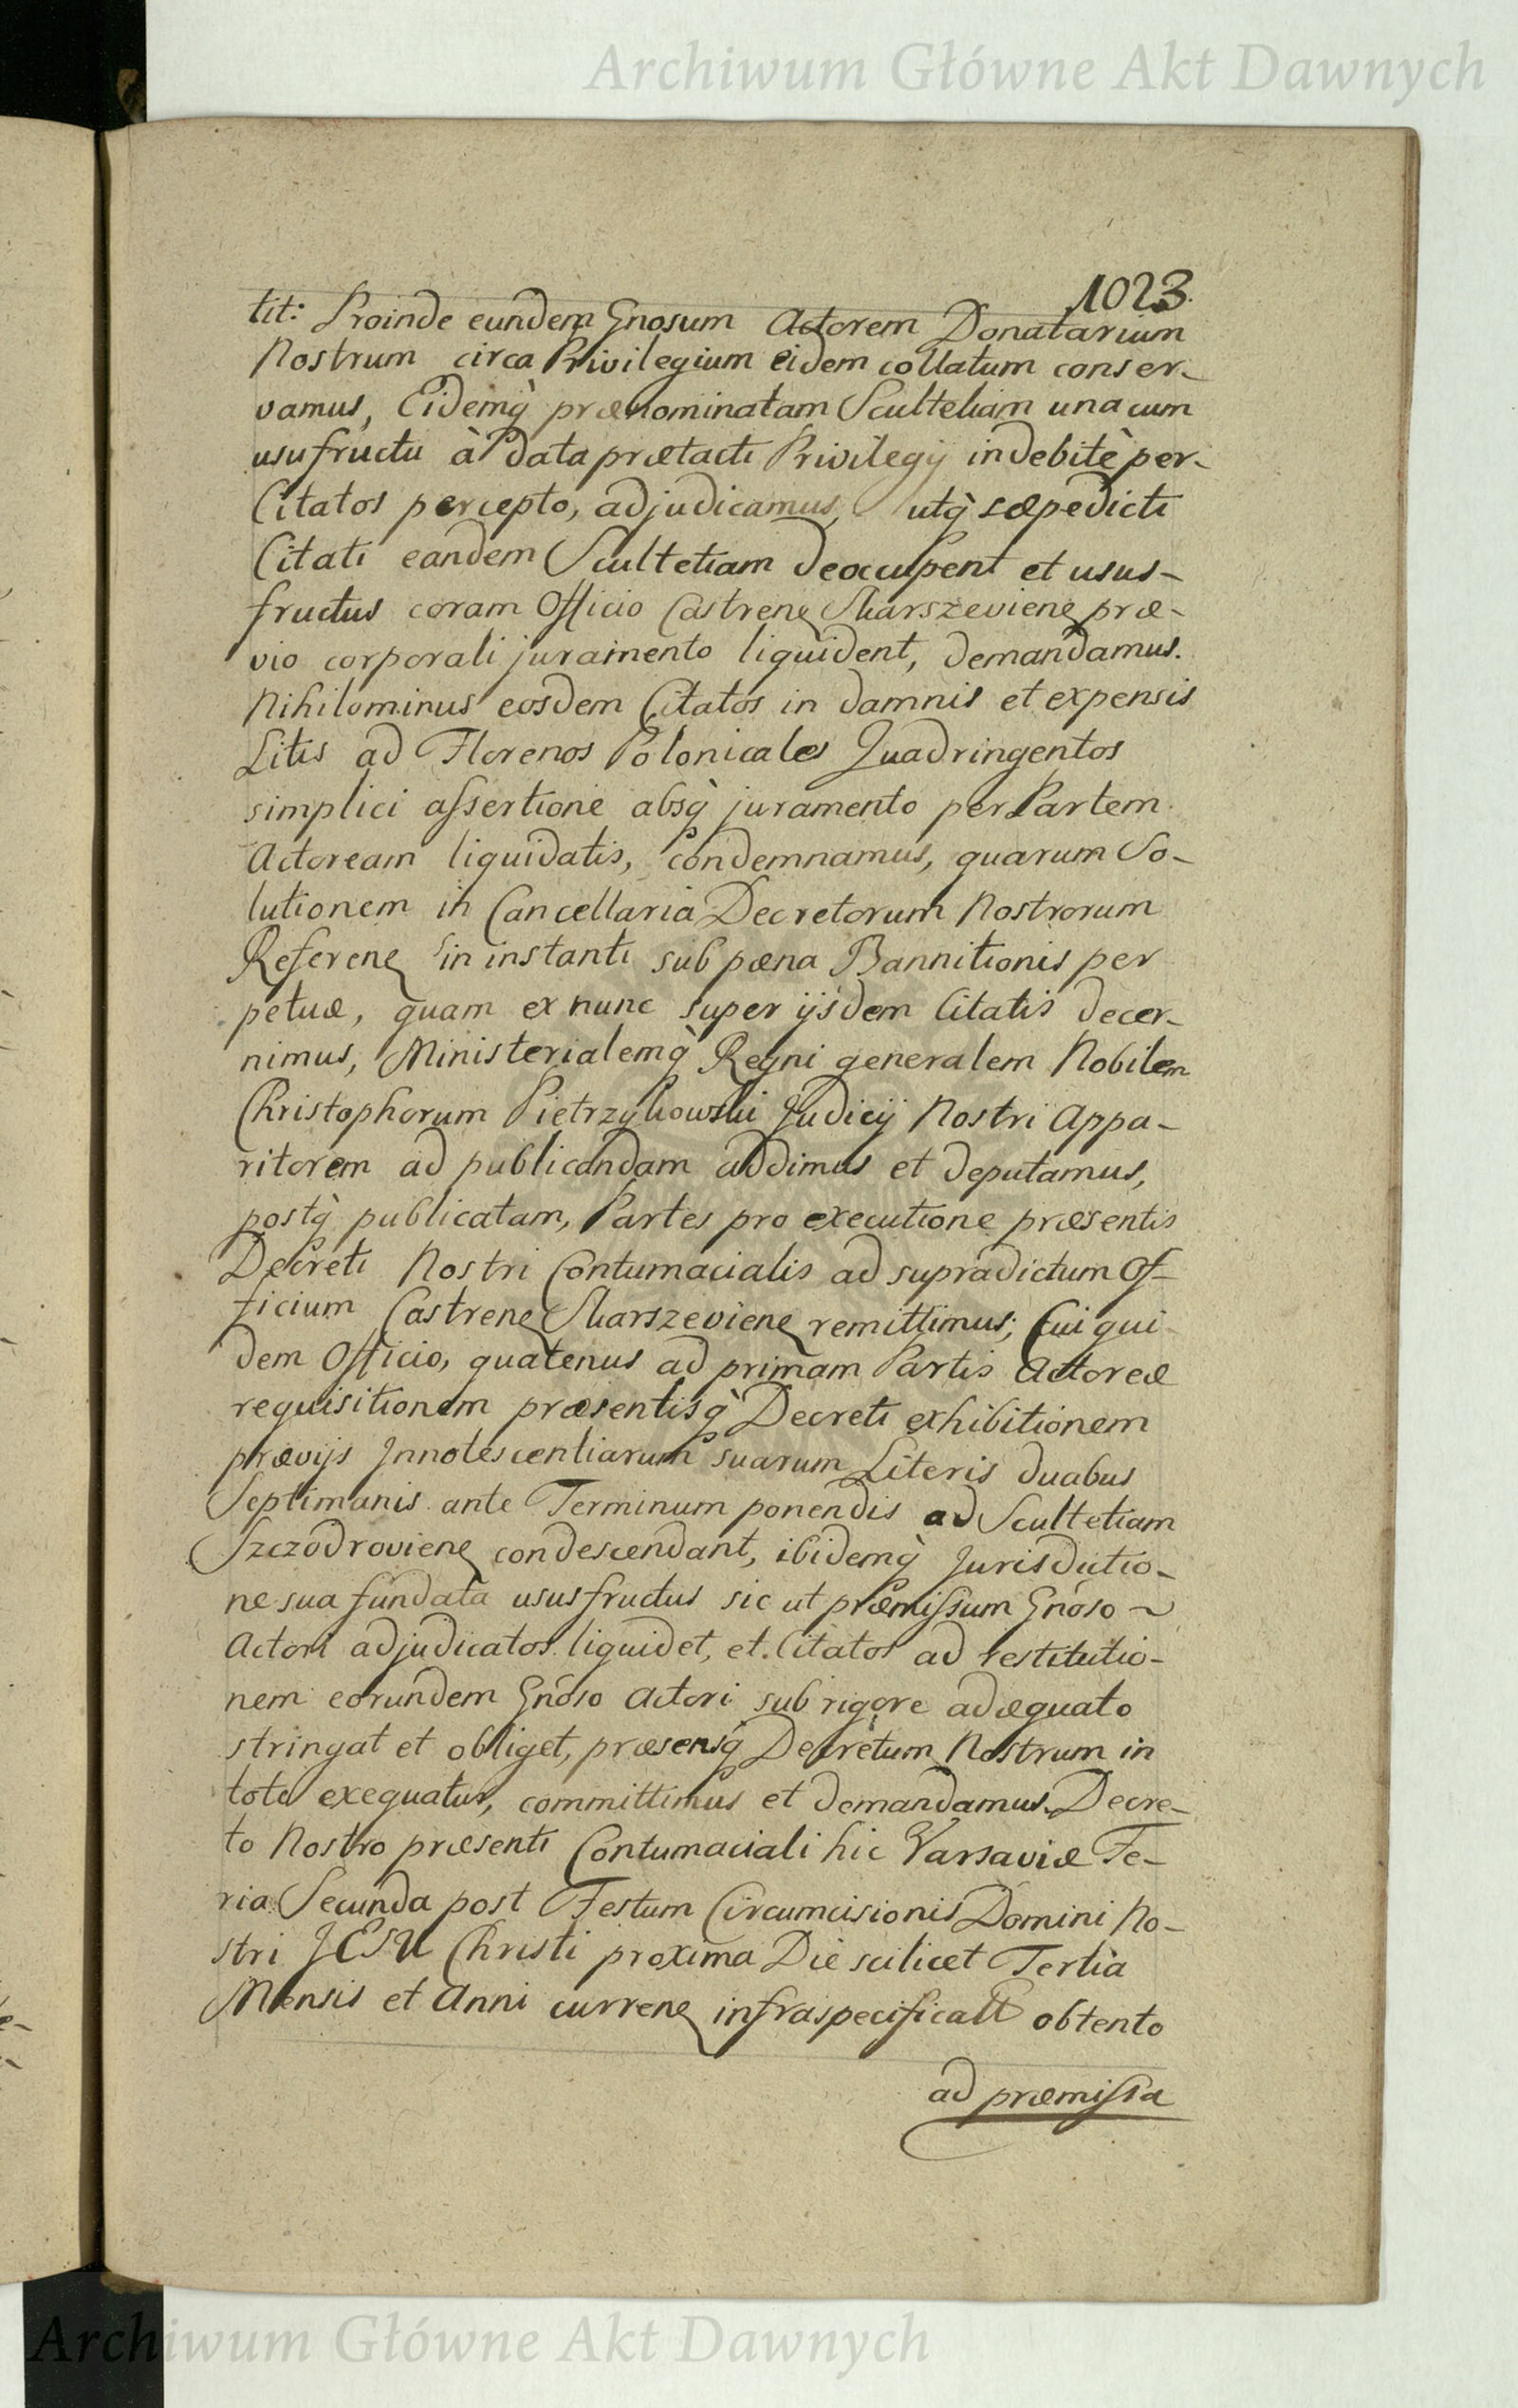 Archiwum Główne Akt Dawnych
1023.
tit: Proinde eundem Gnosum Actorem Donatarium
Nostrum circa Privilegium eidem collatum conser-
vamus, Eidemq̀ prænominatam Scultetiam una cum
usufructu à data prætacti Privilegij indebitè per-
Citatos percepto, adjudicamus, utq̀ sæpedicti
Citati eandem Scultetiam deoccupent et usus-
fructus coram Officio Castrenę Skarszevienę præ-
vio corporali juramento liquident, demandamus.
Nihilominus eosdem Citatos in damnis et expensis
Litis ad Florenos Polonicales Quadringentos
simplici assertione absq̀ juramento per Partem
Actoream liquidatis, condemnamus, quarum So-
lutionem in Cancellaria Decretorum Nostrorum
Referenę in instanti sub pæna Bannitionis per
petuæ, quam ex nunc super ijsdem Citatis decer-
nimus, Ministerialemq̀ Regni generalem Nobilem
Christophorum Pietrzykowski Judicij Nostri Appa-
ritorem ad publicandam addimus et deputamus,
postq̀ publicatam, Partes pro executione præsentis
Decreti Nostri Contumacialis ad supradictum Of-
ficium Castrenę Skarszevienę remittimus; Cui qui
dem Officio, quatenus ad primam Partis Actoreæ
requisitionem præsentisq̀ Decreti exhibitionem
prævijs Innotescentiarum suarum Literis duabus
Septimanis ante Terminum ponendis ad Scultetiam
Szczodrovienę condescendant, ibidemq̀ Jurisdictio-
ne sua fundata usufructus sic ut præmissum Gnoso ~
Actori adjudicatos liquidet, et Citatos ad restitutio-
nem eorundem Gnoso Actori sub rigore adæquato
stringat et obliget, præsensq̀ Decretum Nostrum in
toto exequatur, committimus et demandamus. Decre-
to Nostro præsenti Contumaciali hic Varsaviæ Fe-
ria Secunda post Festum Circumcisionis Domini No-
stri JESU Christi proxima Die scilicet Tertia
Mensis et Anni currenę infraspecificatt obtento
ad præmissa
Archiwum Główne Akt Dawnych